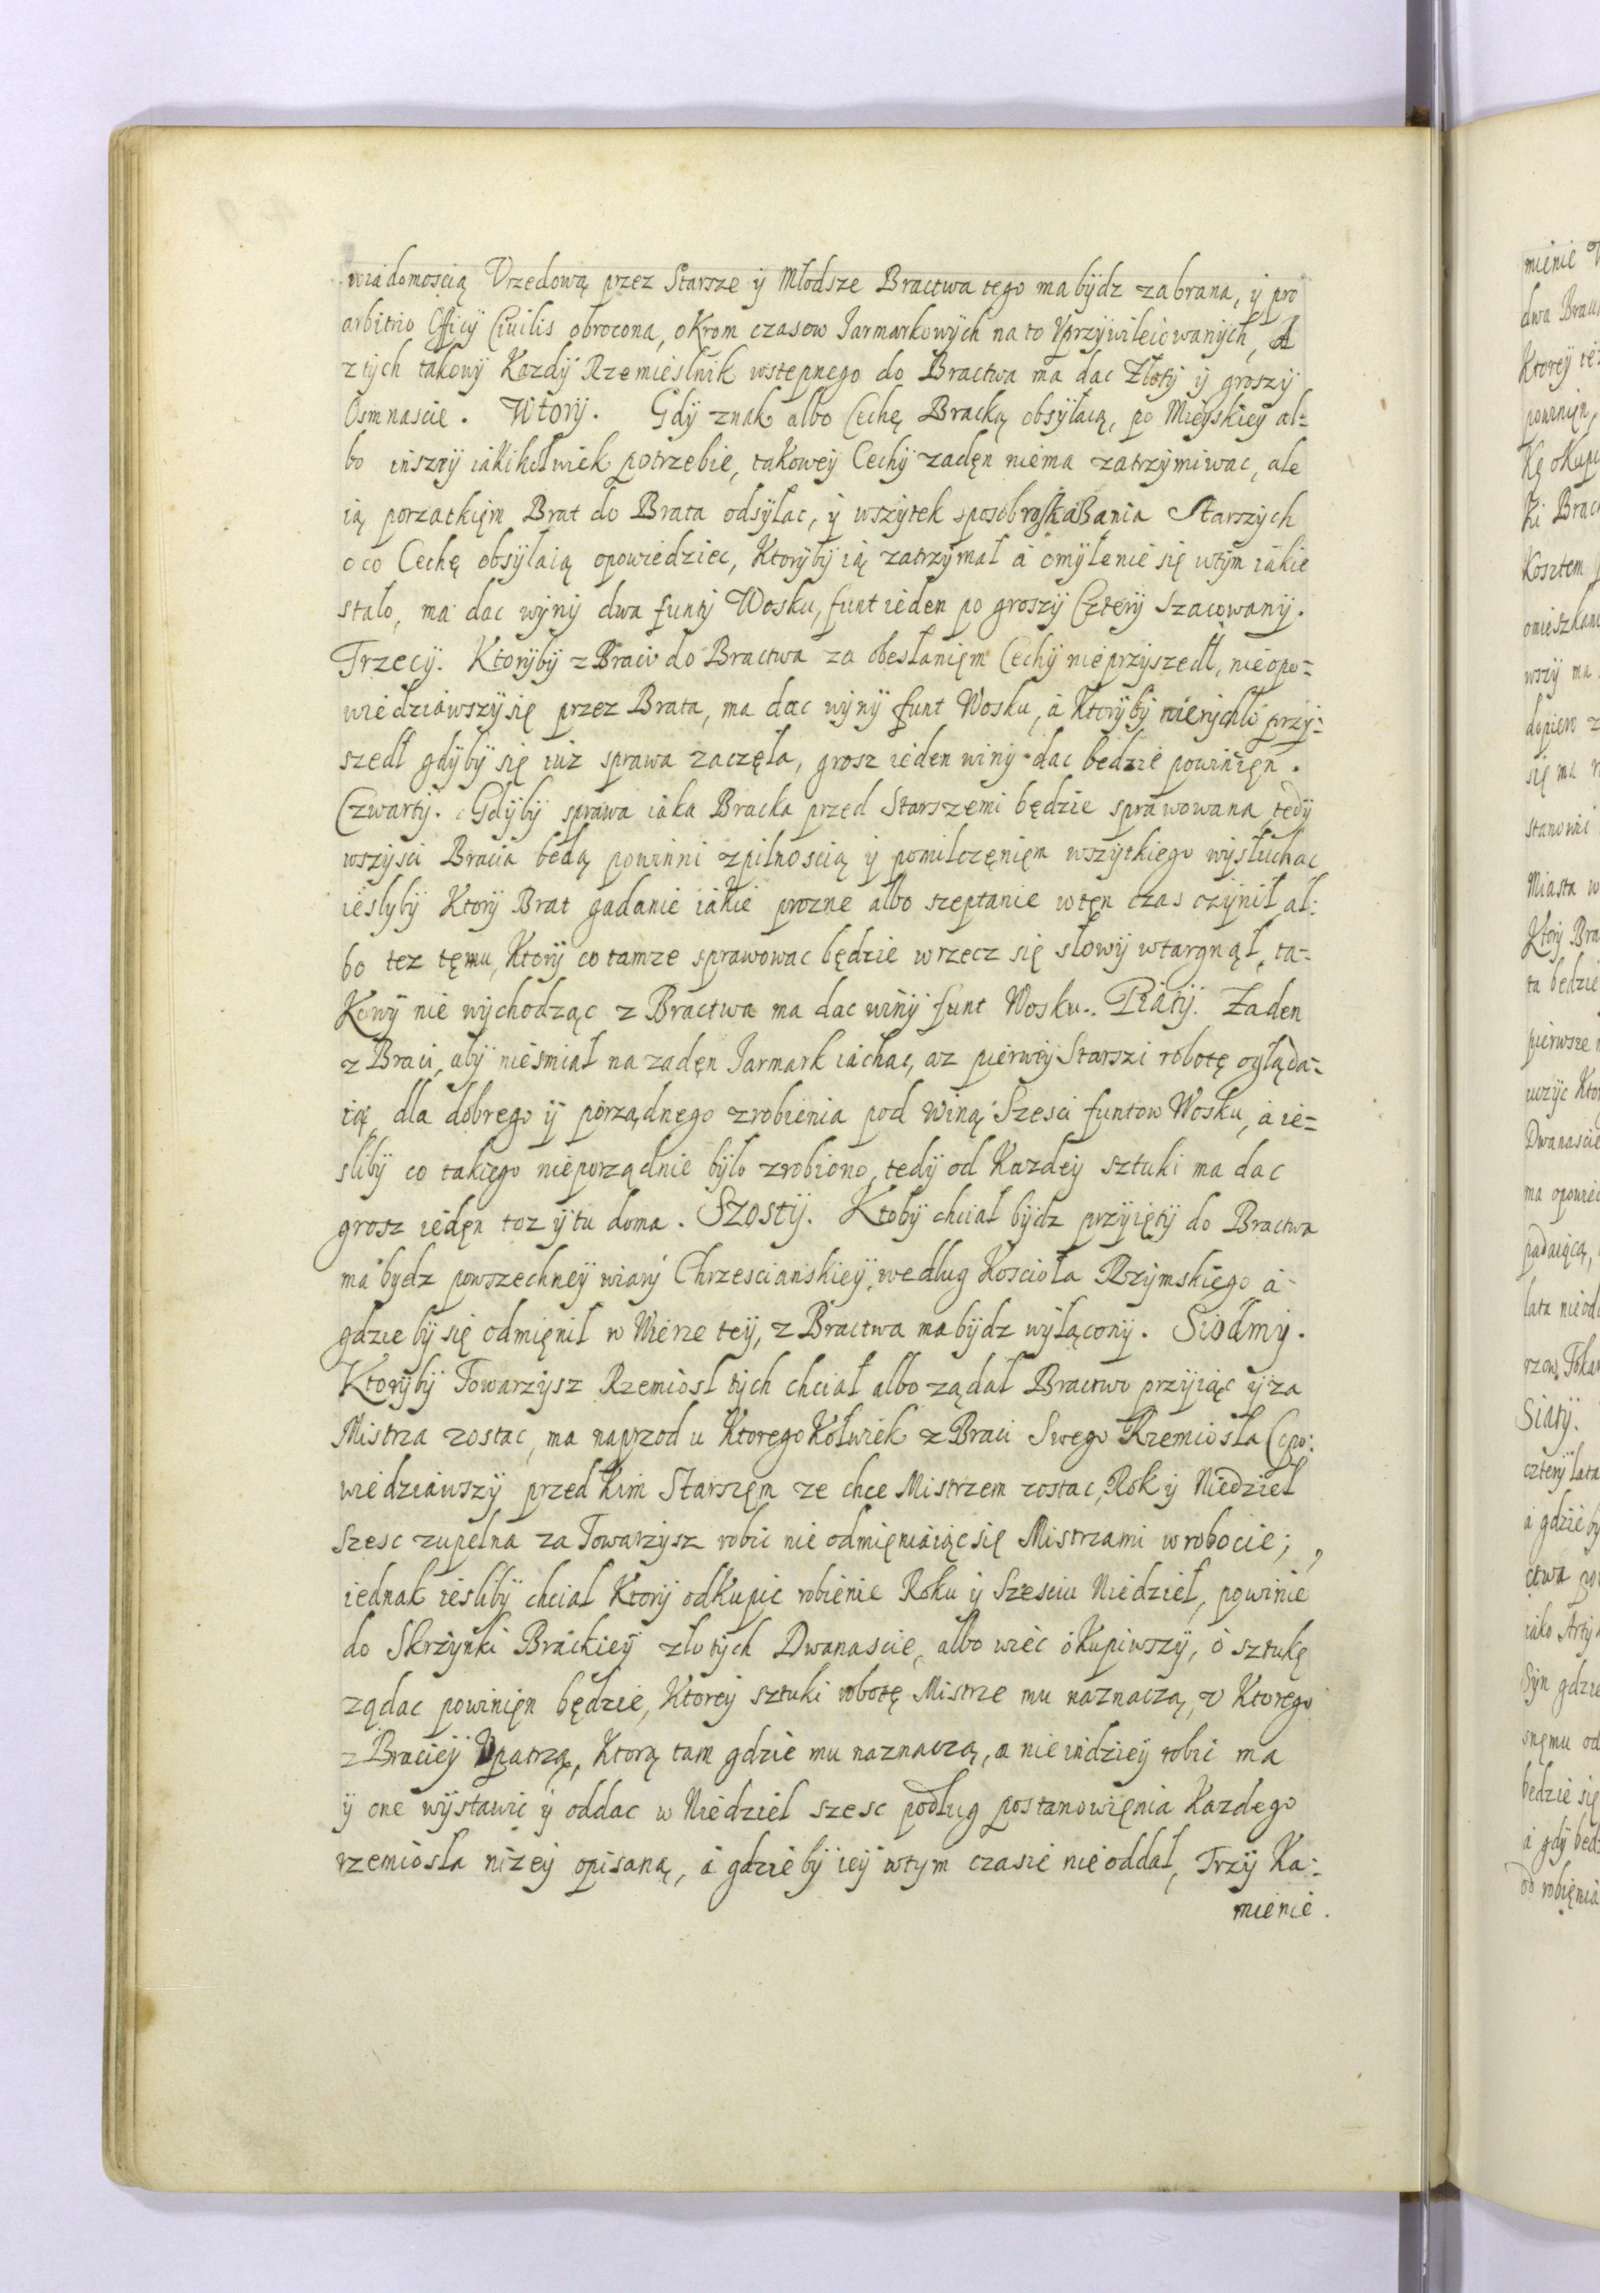 wiadomoscią Vrzedową przez Starsze ÿ Młodsze Bractwa tego ma bÿdz zabrana, ÿ pro
arbitrio Officÿ Ciuilis obrocona, okrom czasow Iarmarkowÿch na to Vprzÿwileiowanÿch, A
z tÿch takowÿ Kazdÿ Rzemieslnik wstepnego do Bractwa ma dac Złotÿ ÿ groszÿ
Osmnascie. Wtorÿ. Gdÿ znak albo Cechę Bracką obsÿłaią, po Mieÿskieÿ al-
bo inszeÿ iakikolwiek potrzebie, takoweÿ Cechÿ zadęn niema zatrzÿmiwac, ale
ią porzatkięm Brat do Brata odsÿlac, ÿ wszÿtek sposob roskaBania Starszÿch
o co Cechę obsÿlaią opowiedziec, Ktorÿbÿ ią zatrzÿmał á omÿlenie się wtÿm iakie
stało, ma dac wÿnÿ dwa funtÿ Wosku, funt ieden po groszÿ Czterÿ szacowanÿ.
Trzecÿ. Ktorÿbÿ z Braci do Bractwa za obesłanięm Cechÿ nie przÿszedł, nie opo-
wiedziawszÿ się przez Brata, ma dac wÿnÿ funt Wosku, á Ktorÿbÿ nierÿchlo przÿ-
szedł gdÿbÿ się iuz sprawa zaczęła, grosz ieden winÿ dac bedzie powinięn.
Czwartÿ. Gdÿbÿ sprawa iaka Bracka przed Starszemi będzie sprawowana tedÿ
wszÿsci Bracia bedą powinni zpilnoscią ÿ pomilczęnięm wszÿtkiego wÿsłuchac
ieslÿbÿ Ktorÿ Brat gadanie iakie prozne albo szeptanie w tęn czas czÿnił al-
bo tez tęmu, Ktorÿ co tamze sprawowac będzie w rzecz się słowÿ wtargnął, ta-
Kowÿ nie wÿchodząc z Bractwa ma dac winÿ funt Wosku. Piatÿ. Zaden
z Braci, abÿ nie smiał na zadęn Iarmark iachac, az pierweÿ Starszi robotę ogląda-
ią dla dobrego ÿ porządnego zrobienia pod winą Szesci funtow Wosku, á ie-
slibÿ co takięgo nieporządnie bÿlo zrobiono, tedÿ od Kazdeÿ sztuki ma dac
grosz iedęn toz ÿ tu doma. Szostÿ. Ktobÿ chciał bÿdz przÿiętÿ do Bractwa
ma bÿdz powszechneÿ wiarÿ Chrzescianskieÿ, wedlug Koscioła Rzÿmskiego á-
gdzie bÿ się odmięnił w Wierze teÿ, z Bractwa ma bÿdz wÿłąconÿ. Siodmÿ.
Ktorÿbÿ Towarzÿsz Rzemiosł tÿch chciał albo ządał Bractwo przÿiąc ÿ za
Mistrza zostac, ma naprzod u Ktorego Kolwiek z Braci Swego Rzemiosła Opo-
wiedziawszÿ przed Kim Starszęm ze chce Mistrzem zostac, Rok ÿ Niedziel
szesc zupełna za Towarzÿsz robic nie odmięniaiąc się Mistrzami w robocie;
iednak ieslibÿ chciał Ktorÿ odkupic robienie Roku ÿ Szesciu Niedziel, powinie
do Skrzÿnki Brackieÿ złotÿch Dwanascie, albo wiec oKupiwszÿ, o sztukę
ządac powinięn będzie, Ktoreÿ sztuki robotę Mistrze mu naznaczą, v Ktorego
z Bracieÿ Vpatrzą, Ktorą tam gdzie mu naznaczą, a nie indzieÿ robic ma
ÿ one wÿstawic ÿ oddac w Niedziel szesc podług postanowięnia Kazdego
rzemiosła nizeÿ opisaną, á gdzie bÿ ieÿ wtÿm czasie nie oddał, Trzÿ Ka-
mienie.